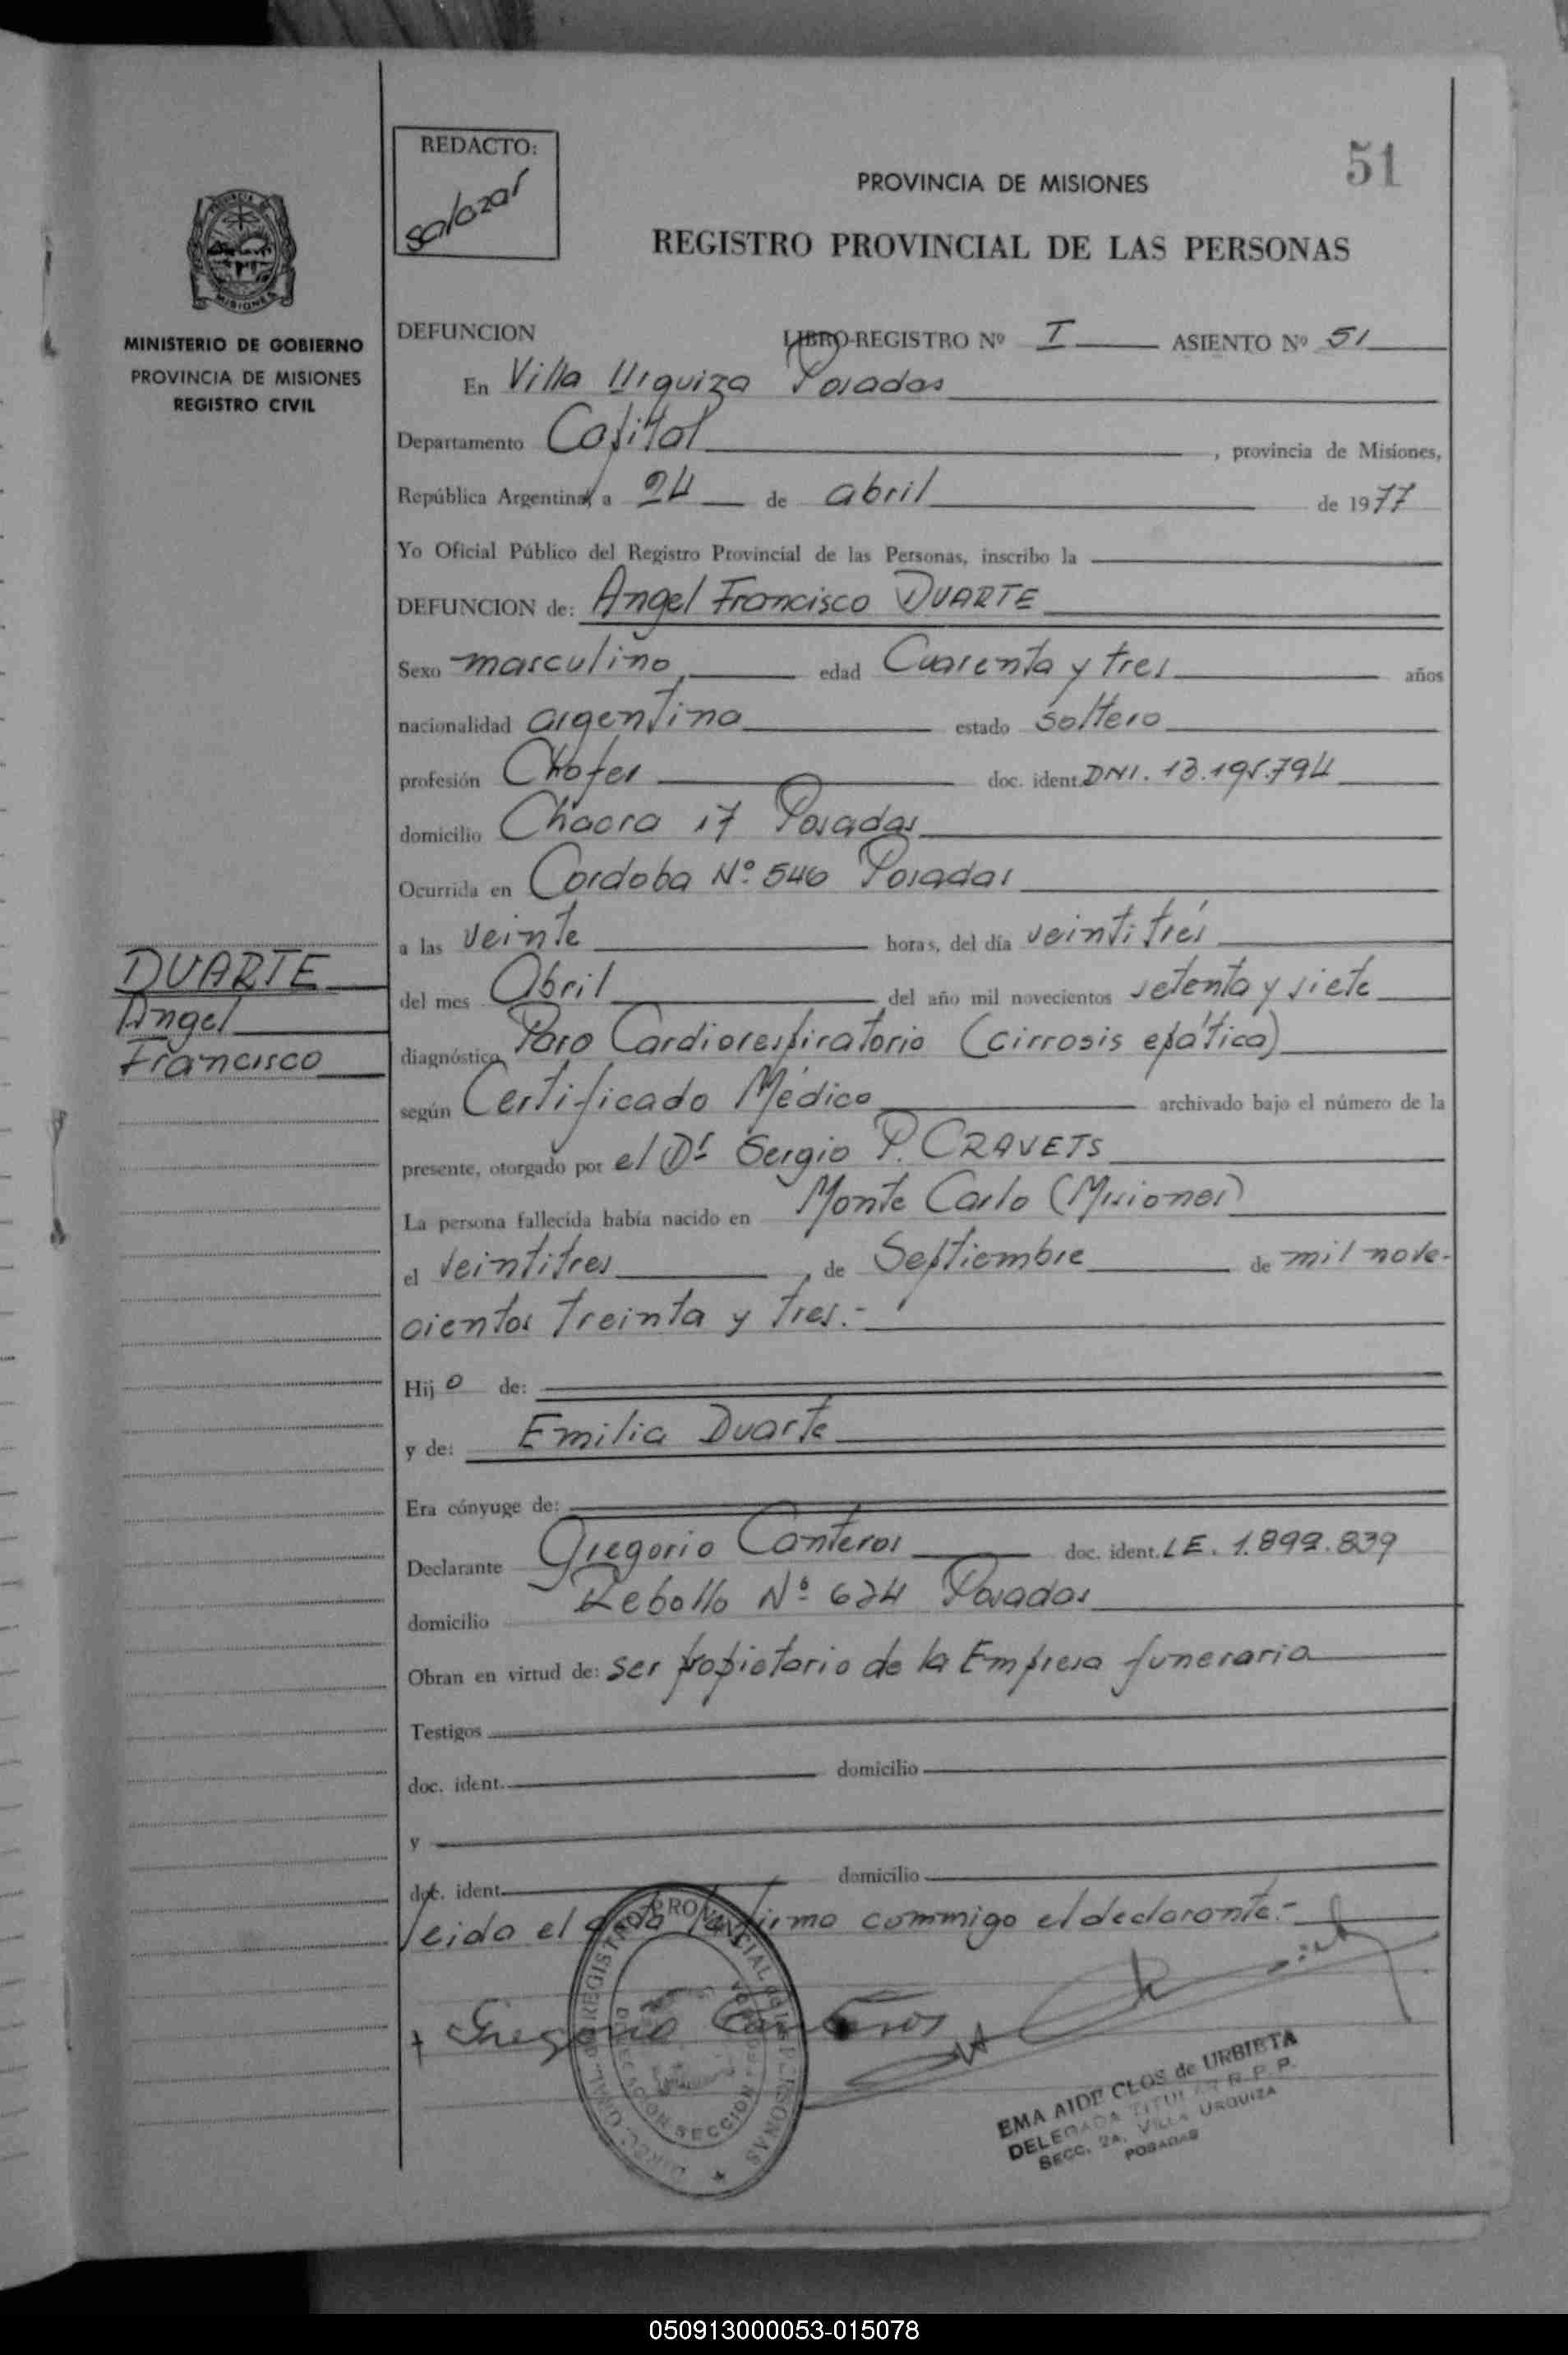 51
REDACTO:
Salazar
PROVINCIA DE MISIONES
REGISTRO PROVINCIAL DE LAS PERSONAS
MISIONES
MINISTERIO DE GOBIERNO
PROVINCIA DE MISIONES
REGISTRO CIVIL
DUARTE
Angel
Francisco
DEFUNCION LIBRO-REGISTRO Nº I ASIENTO Nº 51
En Villa Urquiza Posadas
Departamento Capital, provincia de Misiones,
República Argentina, a 24 de abril de 1977
Yo Oficial Público del Registro Provincial de las Personas, inscribo la
DEFUNCION de: Angel Francisco DUARTE
Sexo masculino, edad Cuarenta y tres años
nacionalidad argentina estado soltero
profesión Chofer doc. ident. DNI. 13.195.794
domicilio Chacra 17 Posadas
Ocurrida en Cordoba Nº 546 Posadas
a las veinte horas, del día veintitrés
del mes Abril del año mil novecientos setenta y siete
diagnóstico Paro Cardiorespiratorio (cirrosis epática)
según Certificado Médico archivado bajo el número de la
presente, otorgado por el Dr Sergio P. CRAVETS
La persona fallecida había nacido en Monte Carlo (Misiones)
el veintitres, de Septiembre de mil nove-
cientos treinta y tres.-
Hijo de:
y de: Emilia Duarte
Era cónyuge de:
Declarante Gregorio Canteros doc. ident. LE. 1.899.839
domicilio Rebollo Nº 624 Posadas
Obran en virtud de: ser propietario de la Empresa funeraria
Testigos
doc. ident. domicilio
y
doc. ident. domicilio
leida el acta la firma commigo el declarante.-
Gregorio Canteros
REGISTRO PROVINCIAL de las PERSONAS
SECCION
EMA AIDE CLOS de URBIETA
DELEGADA TITULAR R. P. P.
SECC. 2A. VILLA URQUIZA
POSADAS
050913000053-015078